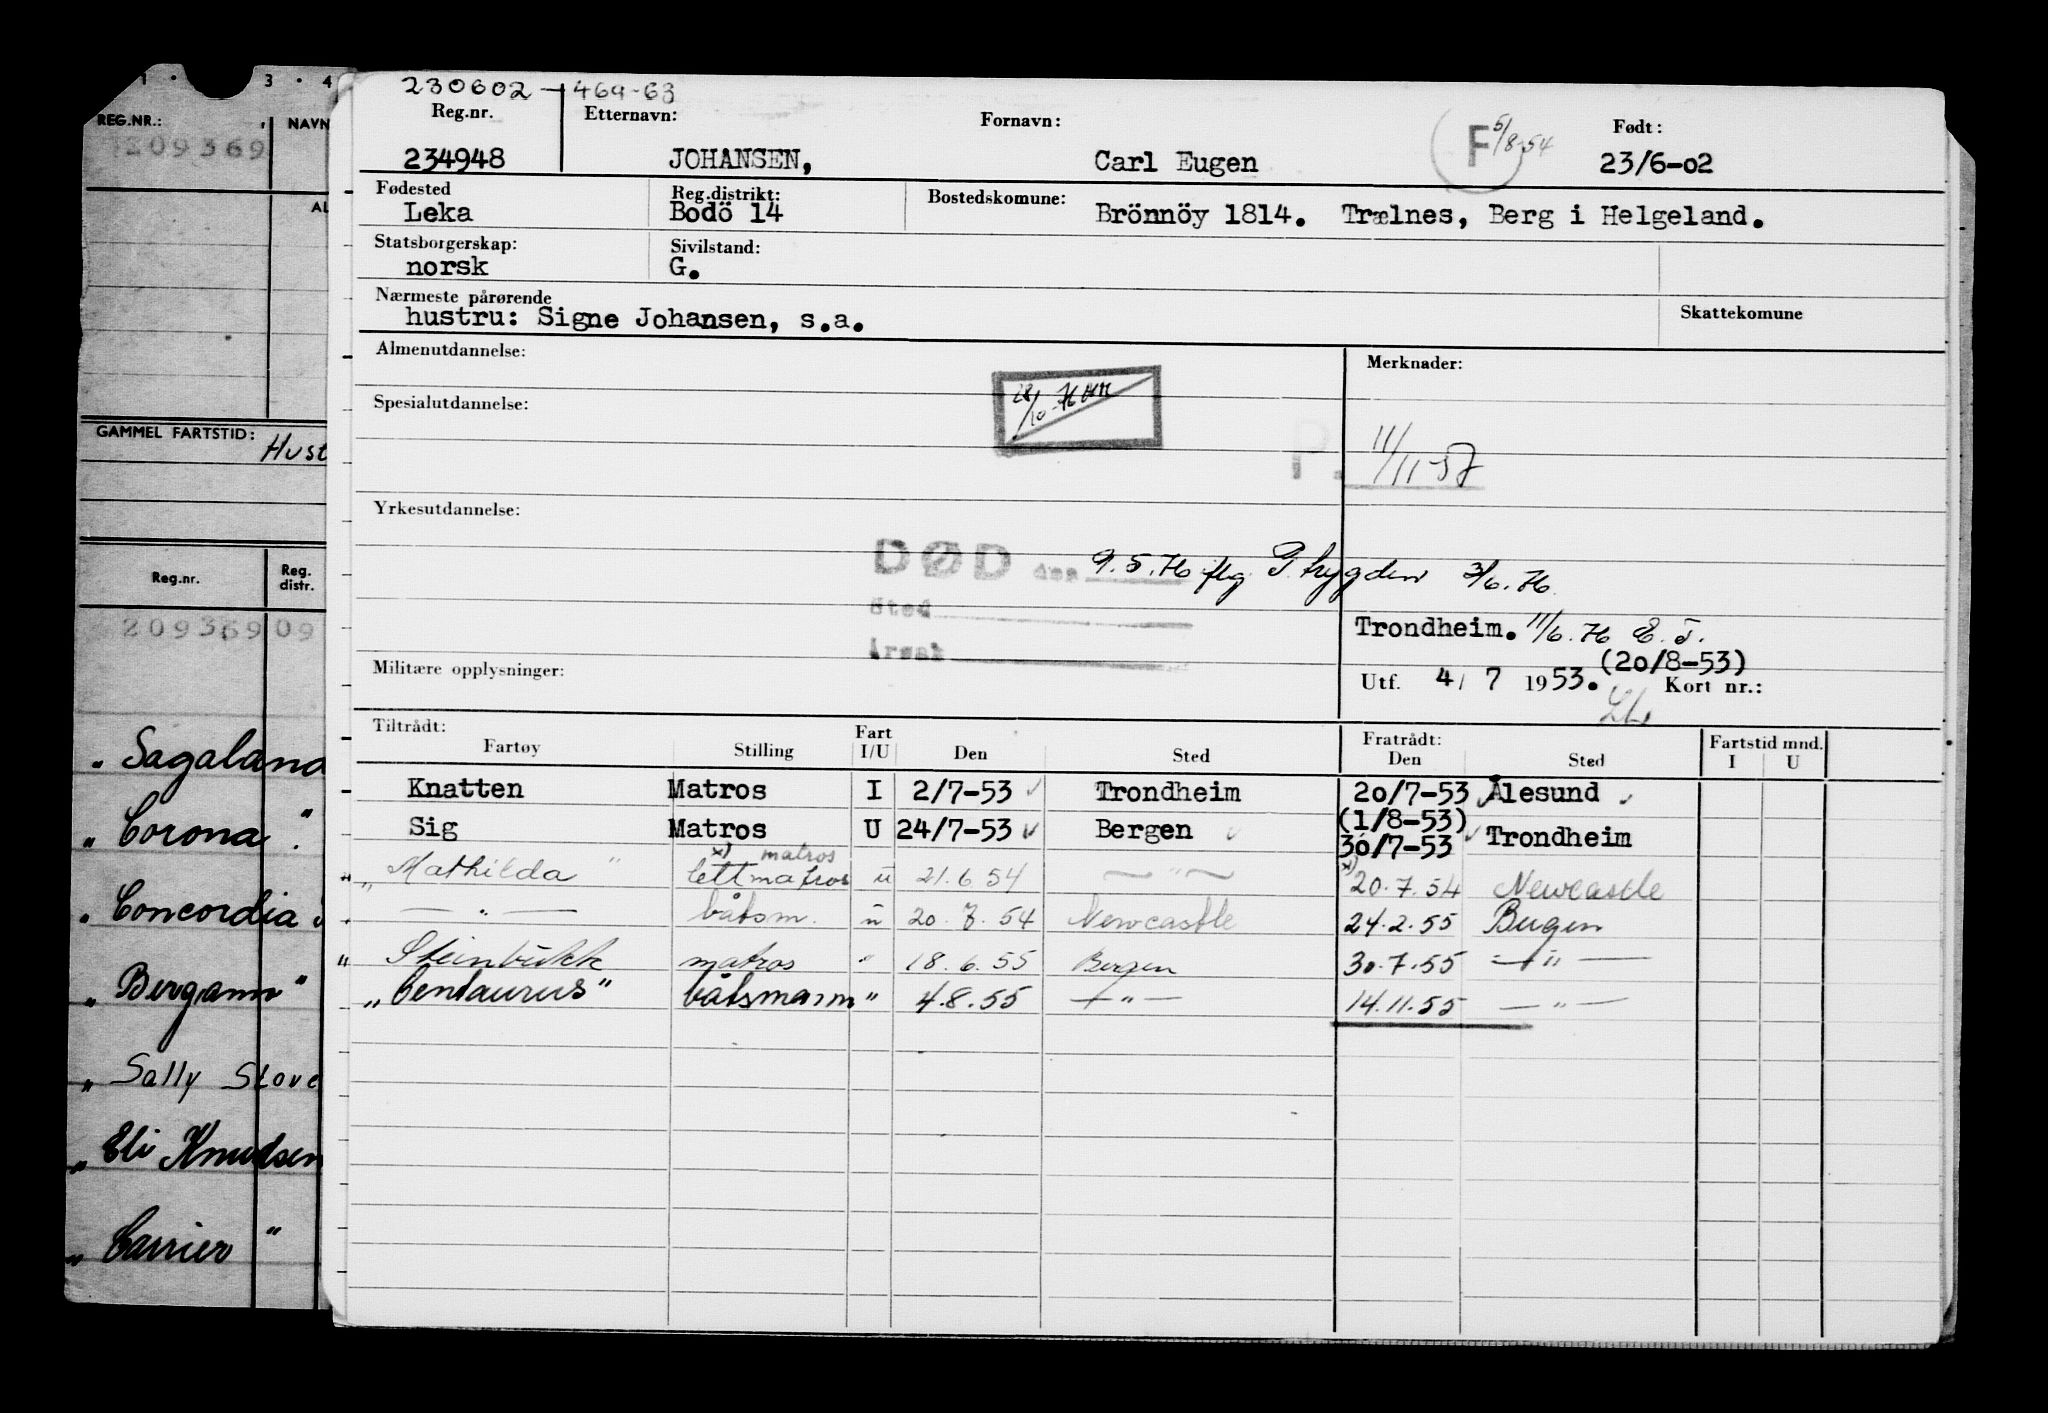 1 · 3 · 4
REG.NR.: NAVN
209369
AL
GAMMEL FARTSTID: Hust
Reg.nr. Reg. distr.
209369 09
" Sagaland
" Corona".
" Concordia
" Bergann"
" Sally Stove
" Eli Knudsen
" Carrier "
230602 - 464-63
Reg.nr. Etternavn: Fornavn: Født:
234948 JOHANSEN, Carl Eugen F 5/8-54 23/6-02
Fødested Reg.distrikt: Bostedskomune:
Leka Bodö 14 Brönnöy 1814. Trælnes, Berg i Helgeland.
Statsborgerskap: Sivilstand:
norsk G.
Nærmeste pårørende Skattekomune
hustru: Signe Johansen, s.a.
Almenutdannelse: Merknader:
Spesialutdannelse: 28/10-76
P. 11/11-57
Yrkesutdannelse:
DØD den 9.5.76 flg. P.trygden 3/6.76
Sted
Årsak
Trondheim. 11/6.76 E.T.
(20/8-53)
Militære opplysninger: Utf. 4/ 7 1953. Kort nr.:
Tiltrådt: Fart Fratrådt: Fartstid mnd.
Fartøy Stilling I/U Den Sted Den Sted I U
Knatten Matros I 2/7-53 Trondheim 20/7-53 Ålesund
(1/8-53)
Sig Matros U 24/7-53 Bergen 30/7-53 Trondheim
x) matros
" Mathilda " lettmatros u 21.6.54 — " — x) 20.7.54 Newcastle
— " — båtsm. u 20.7.54 Newcastle 24.2.55 Bergen
" Steinbukk matros " 18.6.55 Bergen 30.7.55 — " —
" Centaurus" båtsmann " 4.8.55 — " — 14.11.55 — " —